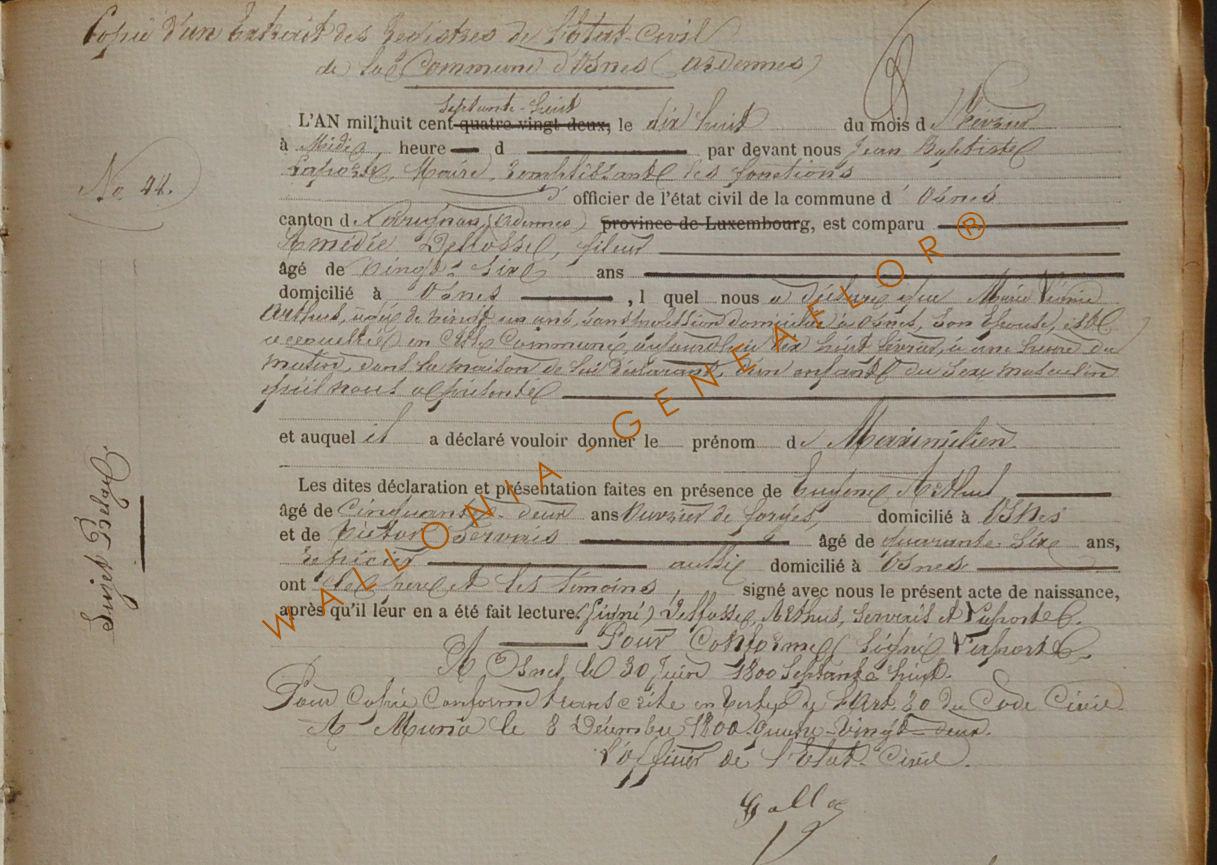 Copie d'un Extrait des Registres de l'Etat-Civil
de la Commune d'Osnes (Ardennes)
septante-huit
L'AN mil huit cent quatre-vingt-deux, le dix huit du mois d Février
à Midi, heure d par devant nous Jean Baptiste
Laporte, Maire, remplissant les fonctions
No 44.
officier de l'état civil de la commune d' Osnes
canton de (Ardennes) province de Luxembourg, est comparu
Amédée Delfosse, fileur
âgé de vingt-six ans
domicilié à Osnes, l quel nous a déclaré que Marie
Arthus, agée de vingt un ans, sans profession domiciliée à Osnes, son Epouse, est
accouchée en cette Commune, aujourd'hui dix huit février, à une heure du
matin, dans la maison de lui déclarant, d'un enfant du sexe masculin
qu'il nous a présenté
et auquel il a déclaré vouloir donner le prénom de Maximilien
Les dites déclaration et présentation faites en présence de Eugène Arthus
âgé de Cinquante-deux ans ouvrier de forges, domicilié à Osnes
et de Victor Servais âgé de quarante-six ans,
aussi domicilié à Osnes
ont les père et les témoins, signé avec nous le présent acte de naissance,
après qu'il leur en a été fait lecture. (Signé) Delfosse, Arthus, Servais et Laporte.
Pour Conforme (signé) Laporte.
A Osnes, le 30 Juin 1800 septante huit.
Pour Copie Conforme transcrite en vertu de l'Art. 80 du Code Civil.
A Muno le 8 Décembre 1800 quatre-vingt-deux.
L'officier de l'Etat-Civil.
Sujet Belge
WALLONIA-GENEAFLOR®